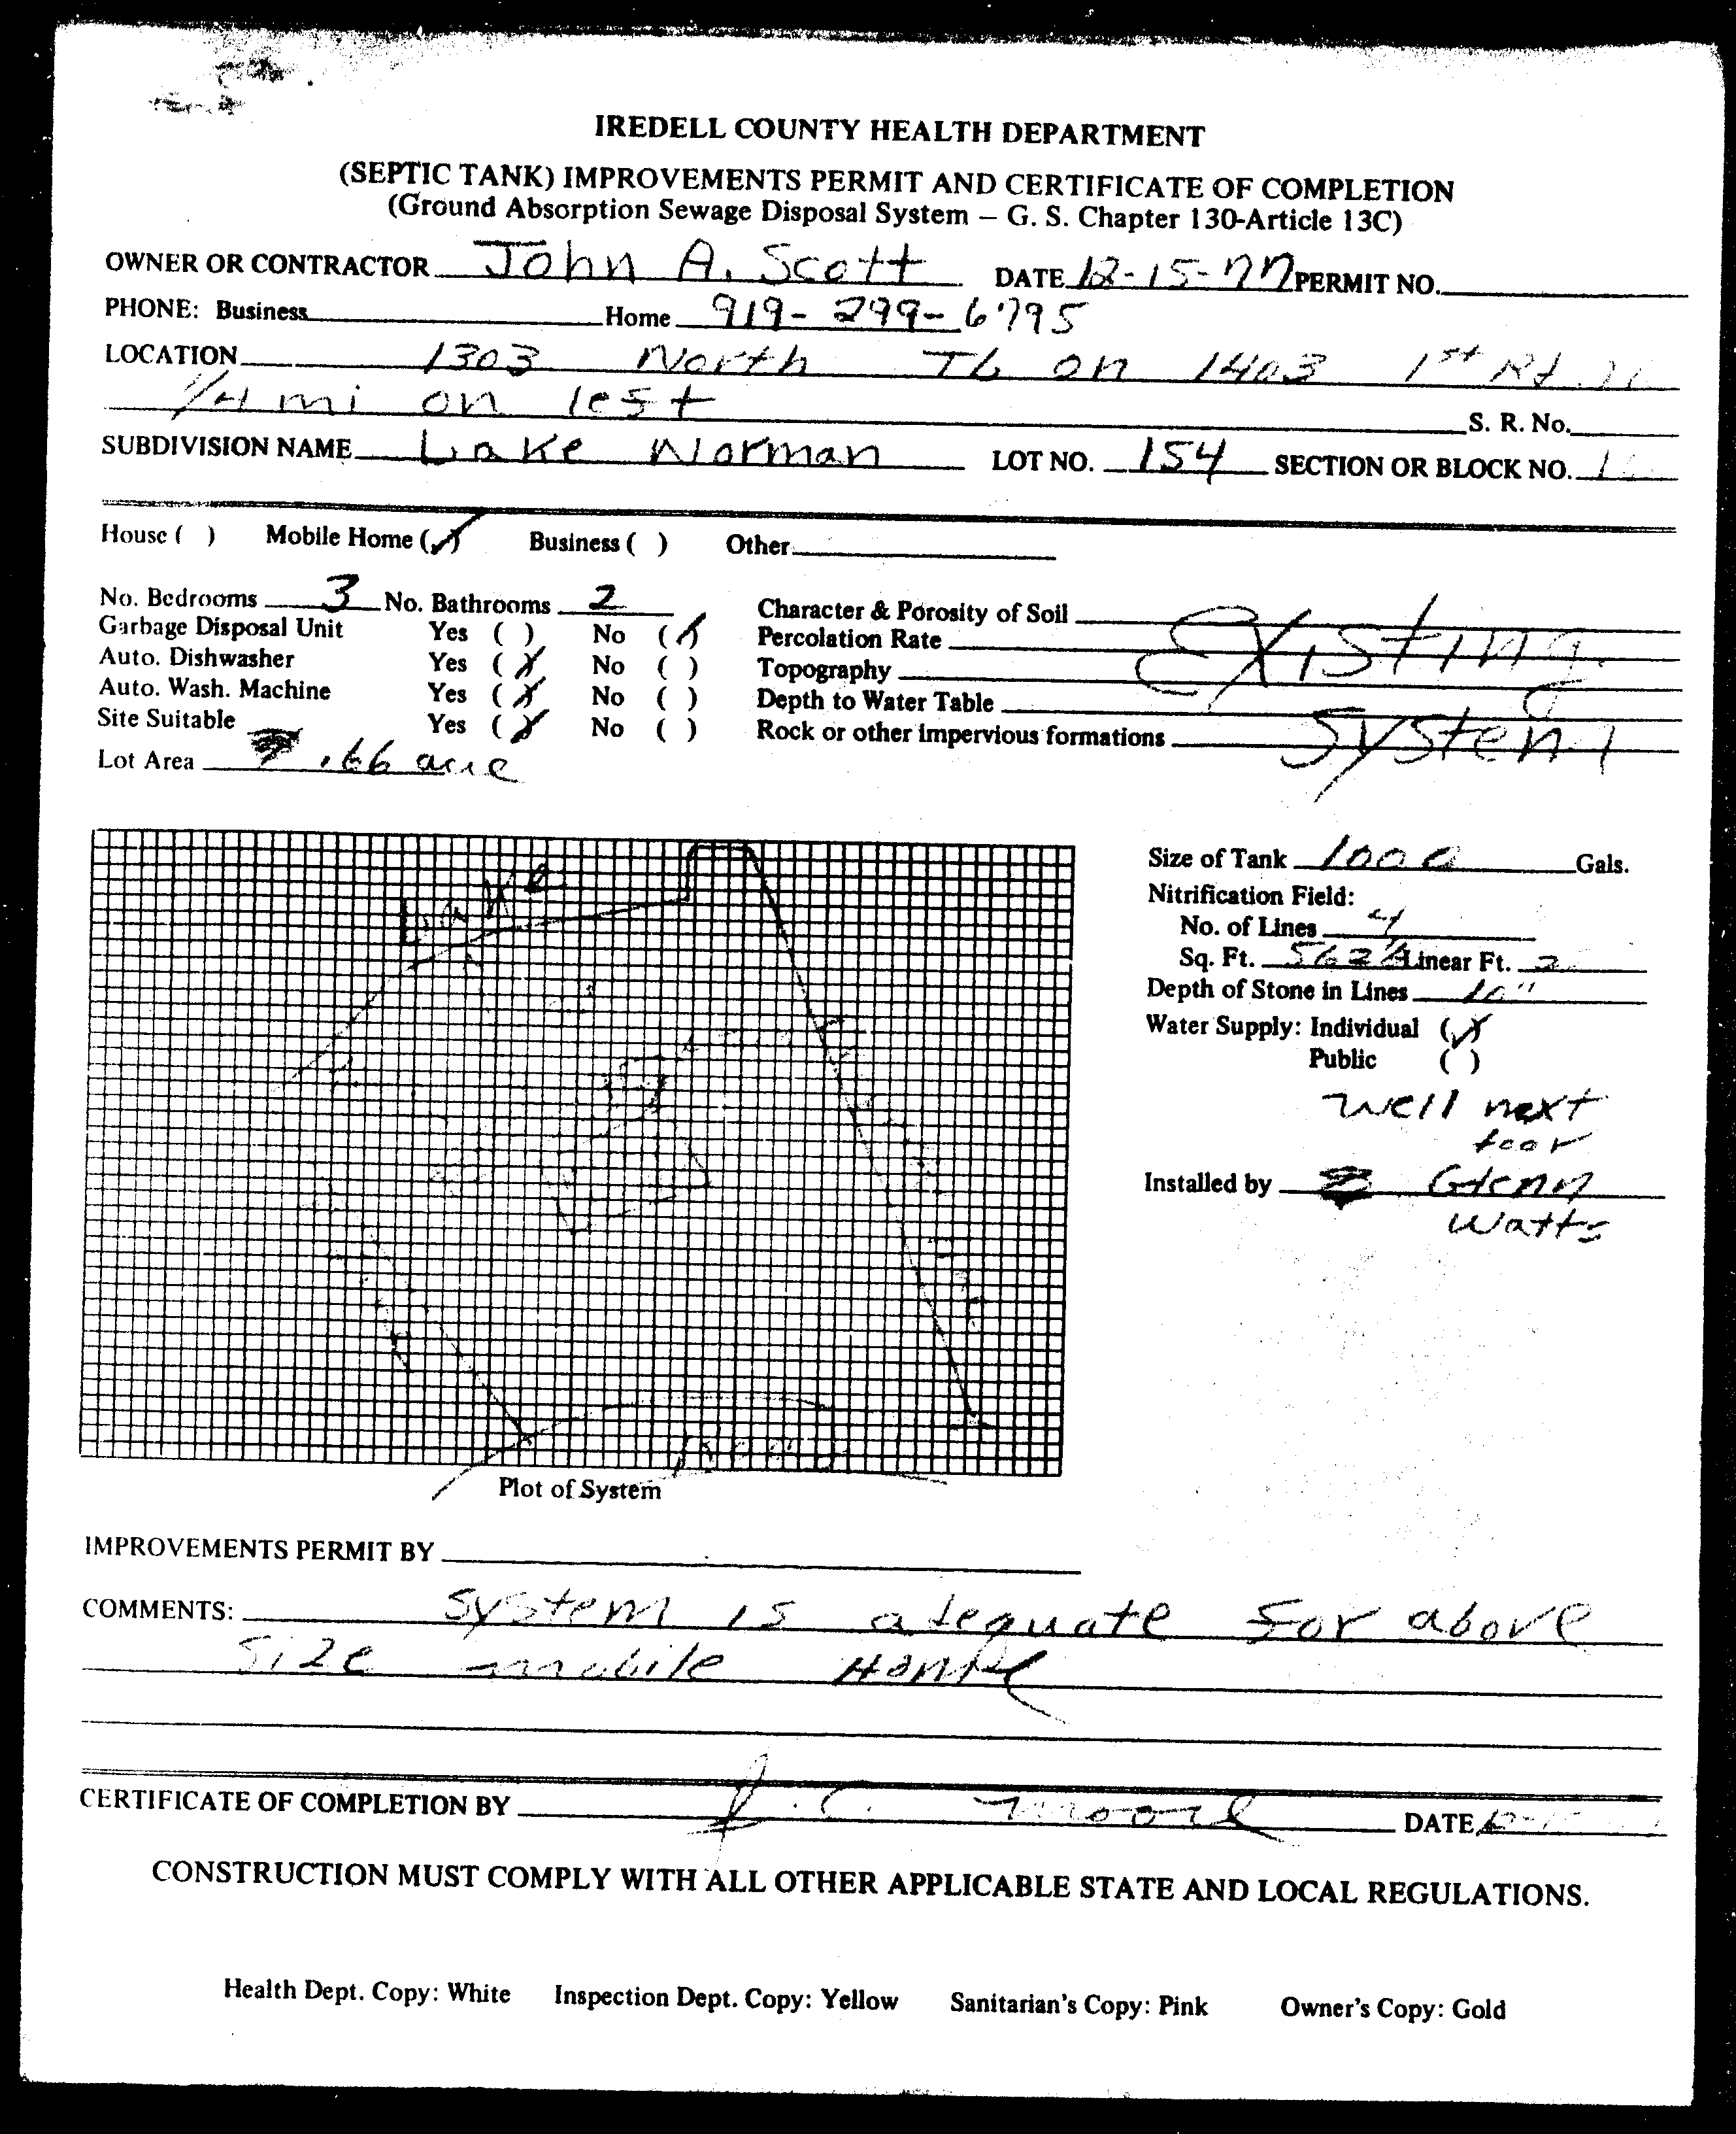 IREDELL COUNTY HEALTH DEPARTMENT
(SEPTIC TANK) IMPROVEMENTS PERMIT AND CERTIFICATE OF COMPLETION
(Ground Absorption Sewage Disposal System – G. S. Chapter 130-Article 13C)
OWNER OR CONTRACTOR John A. Scott DATE 12-15-77 PERMIT NO.
PHONE: Business Home 919-299-6795
LOCATION 1303 North TL on 1403 1st Rd
1/4 mi on left S. R. No.
SUBDIVISION NAME Lake Norman LOT NO. 154 SECTION OR BLOCK NO.
House ( ) Mobile Home (✓) Business ( ) Other
No. Bedrooms 3 No. Bathrooms 2 Character & Porosity of Soil Existing
Garbage Disposal Unit Yes ( ) No (✓) Percolation Rate
Auto. Dishwasher Yes (✓) No ( ) Topography
Auto. Wash. Machine Yes (✓) No ( ) Depth to Water Table
Site Suitable Yes (✓) No ( ) Rock or other impervious formations System
Lot Area .66 acre
Lake
Size of Tank 1000 Gals.
Nitrification Field:
No. of Lines 4
Sq. Ft. 562 Linear Ft.
Depth of Stone in Lines 10"
Water Supply: Individual (✓)
Public ( )
Well next
door
Installed by Glenn
Watts
Plot of System
IMPROVEMENTS PERMIT BY
COMMENTS: System is adequate for above
size mobile Home
CERTIFICATE OF COMPLETION BY J.C. Moore DATE
CONSTRUCTION MUST COMPLY WITH ALL OTHER APPLICABLE STATE AND LOCAL REGULATIONS.
Health Dept. Copy: White Inspection Dept. Copy: Yellow Sanitarian's Copy: Pink Owner's Copy: Gold